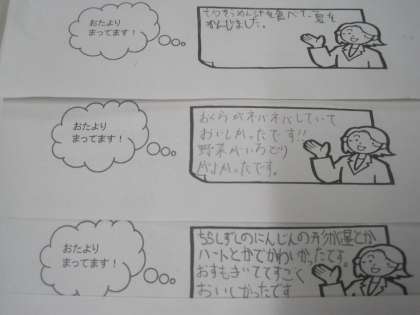 おたより
まってます！
そうめん汁を食べて、夏を
かんじました。
おたより
まってます！
おくらがネバネバしていて
おいしかったです!!
野菜がいろどり
がよかったです。
おたより
まってます！
ちらしずしのにんじんの形が星とか
ハートとかでかわいかったです。
おすもきいててすごく
おいしかったです